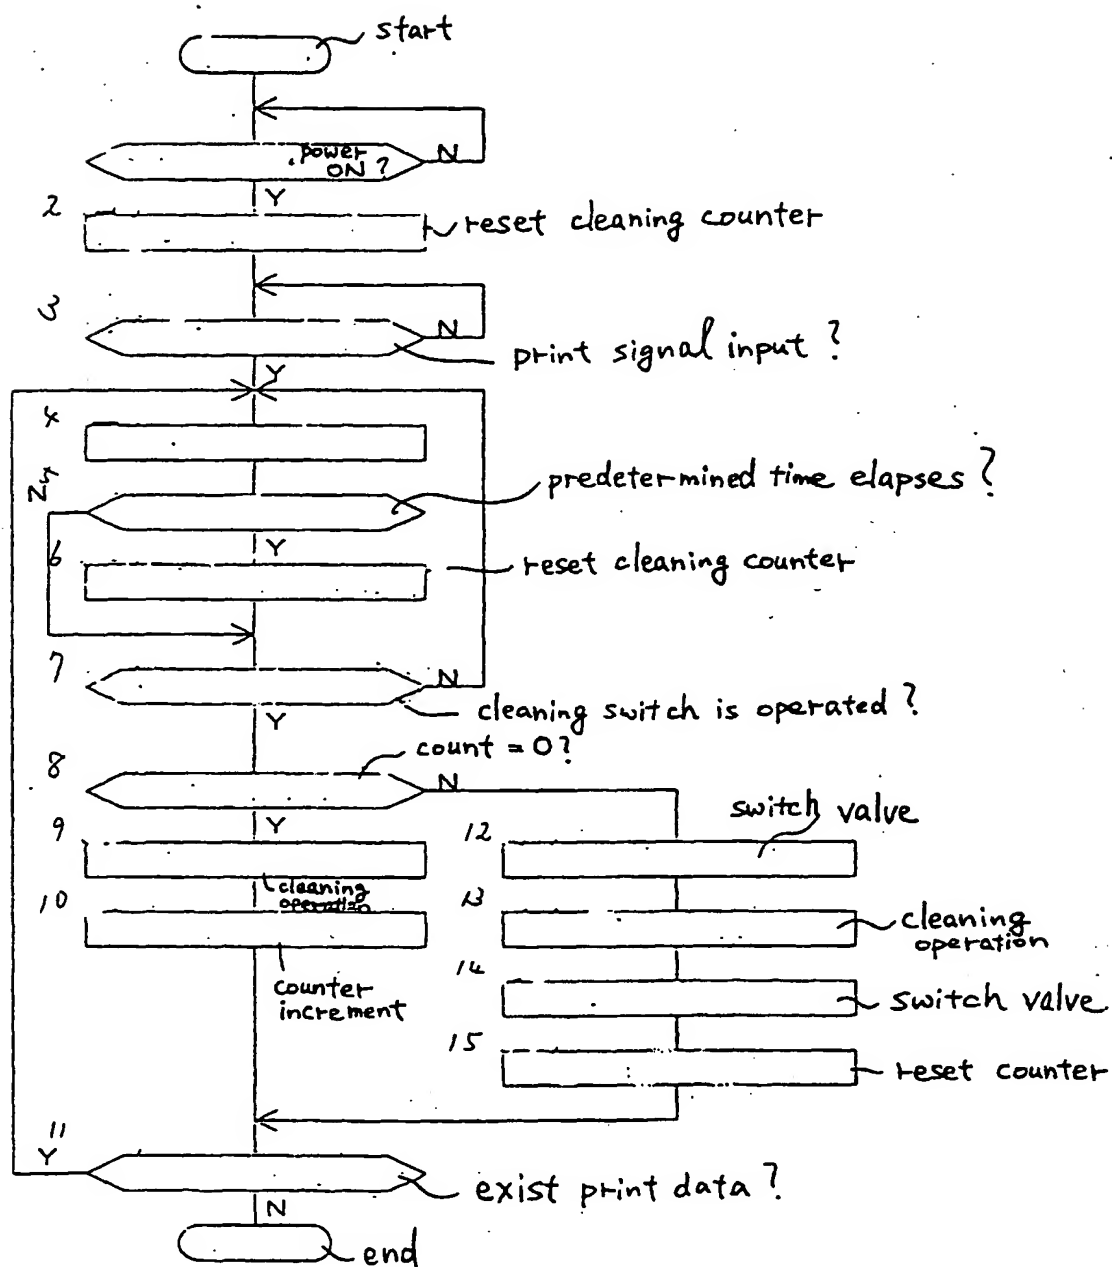 start
power
ON ?
N
Y
2
reset cleaning counter
3
N
print signal input ?
Y
4
N 5
predetermined time elapses ?
Y
6
reset cleaning counter
7
N
cleaning switch is operated ?
Y
count = 0 ?
8
N
Y
9
cleaning
operation
10
counter
increment
12
switch valve
13
cleaning
operation
14
switch valve
15
reset counter
11
Y
exist print data ?
N
end